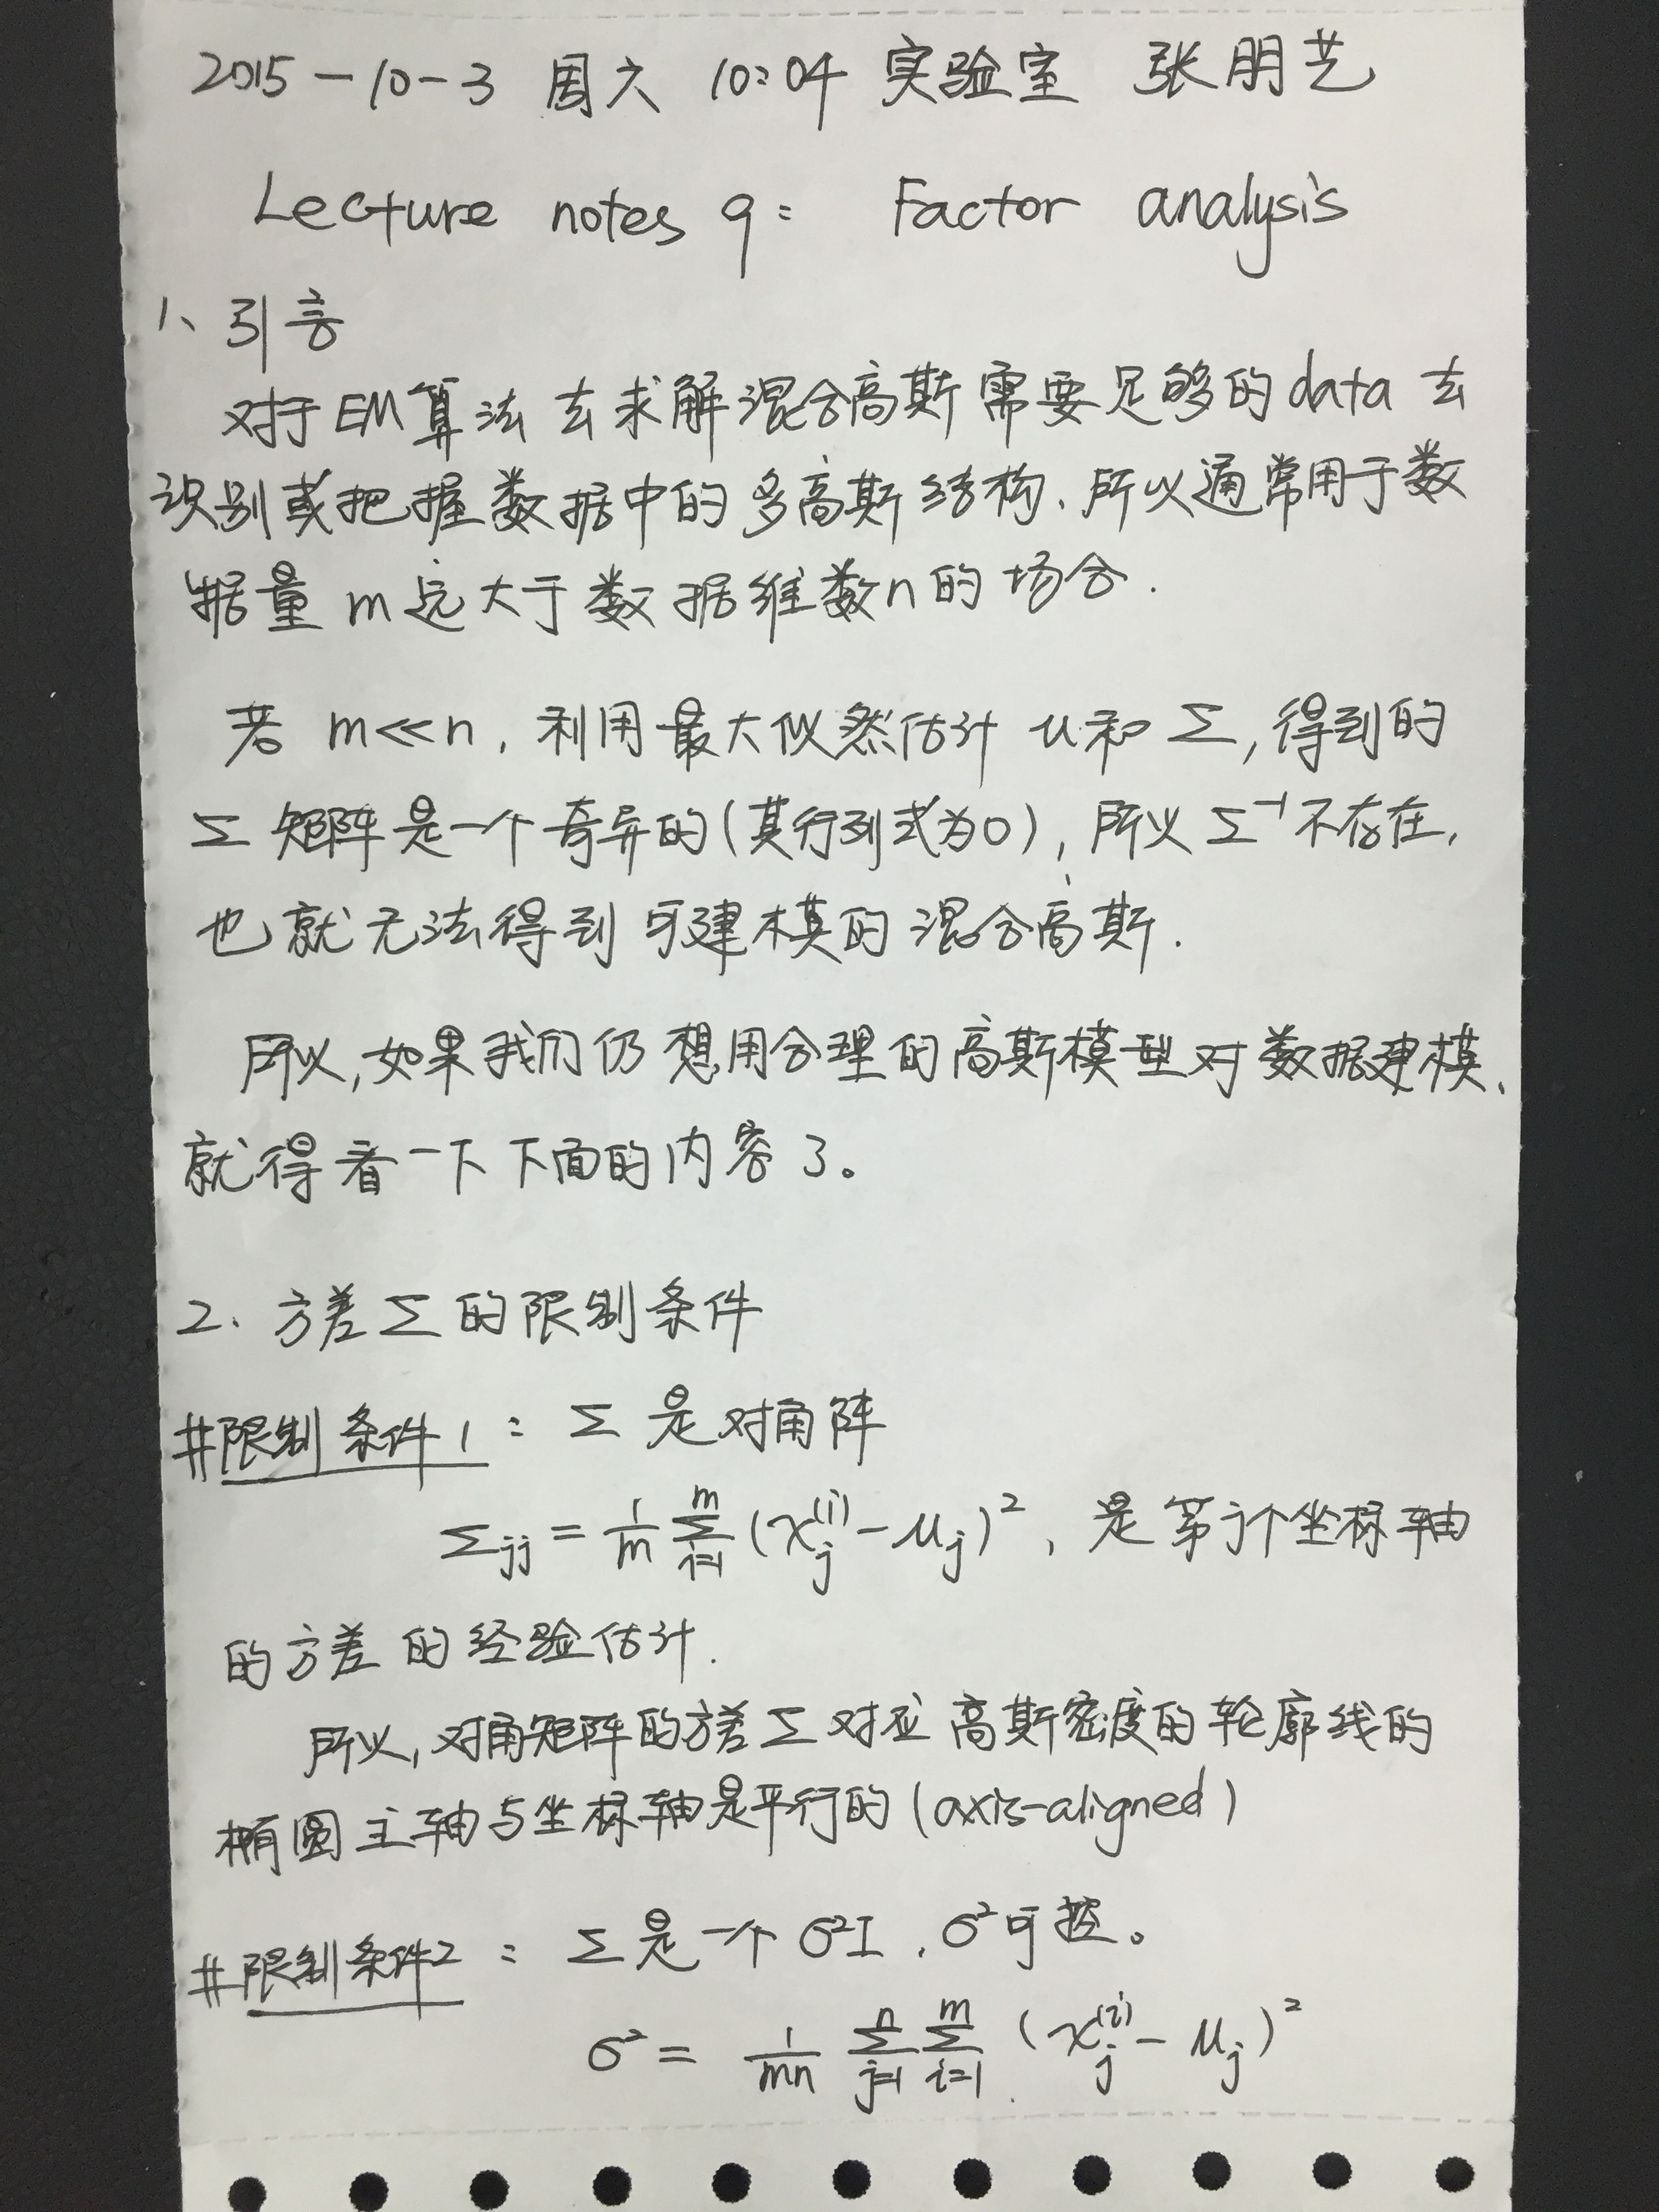 2015-10-3 周六 10:04 实验室 张朋艺
Lecture notes 9: Factor analysis
1、引言
对于EM算法去求解混合高斯需要足够的data去
识别或把握数据中的多高斯结构、所以通常用于数
据量m远大于数据维数n的场合.
若 m≪n, 利用最大似然估计 u和Σ, 得到的
Σ矩阵是一个奇异的(其行列式为0), 所以Σ⁻¹不存在,
也就无法得到可建模的混合高斯.
所以, 如果我们仍想用合理的高斯模型对数据建模、
就得看一下下面的内容了。
2. 方差Σ的限制条件
#限制条件1: Σ是对角阵
Σjj = 1/m Σ_{i=1}^{m} (x_j^{(i)} - μ_j)², 是第j个坐标轴
的方差的经验估计.
所以, 对角矩阵的方差Σ对应高斯密度的轮廓线的
椭圆主轴与坐标轴是平行的(axis-aligned)
#限制条件2: Σ是一个σ²I, σ²可控。
σ² = 1/mn Σ_{j=1}^{n} Σ_{i=1}^{m} (x_j^{(i)} - μ_j)²